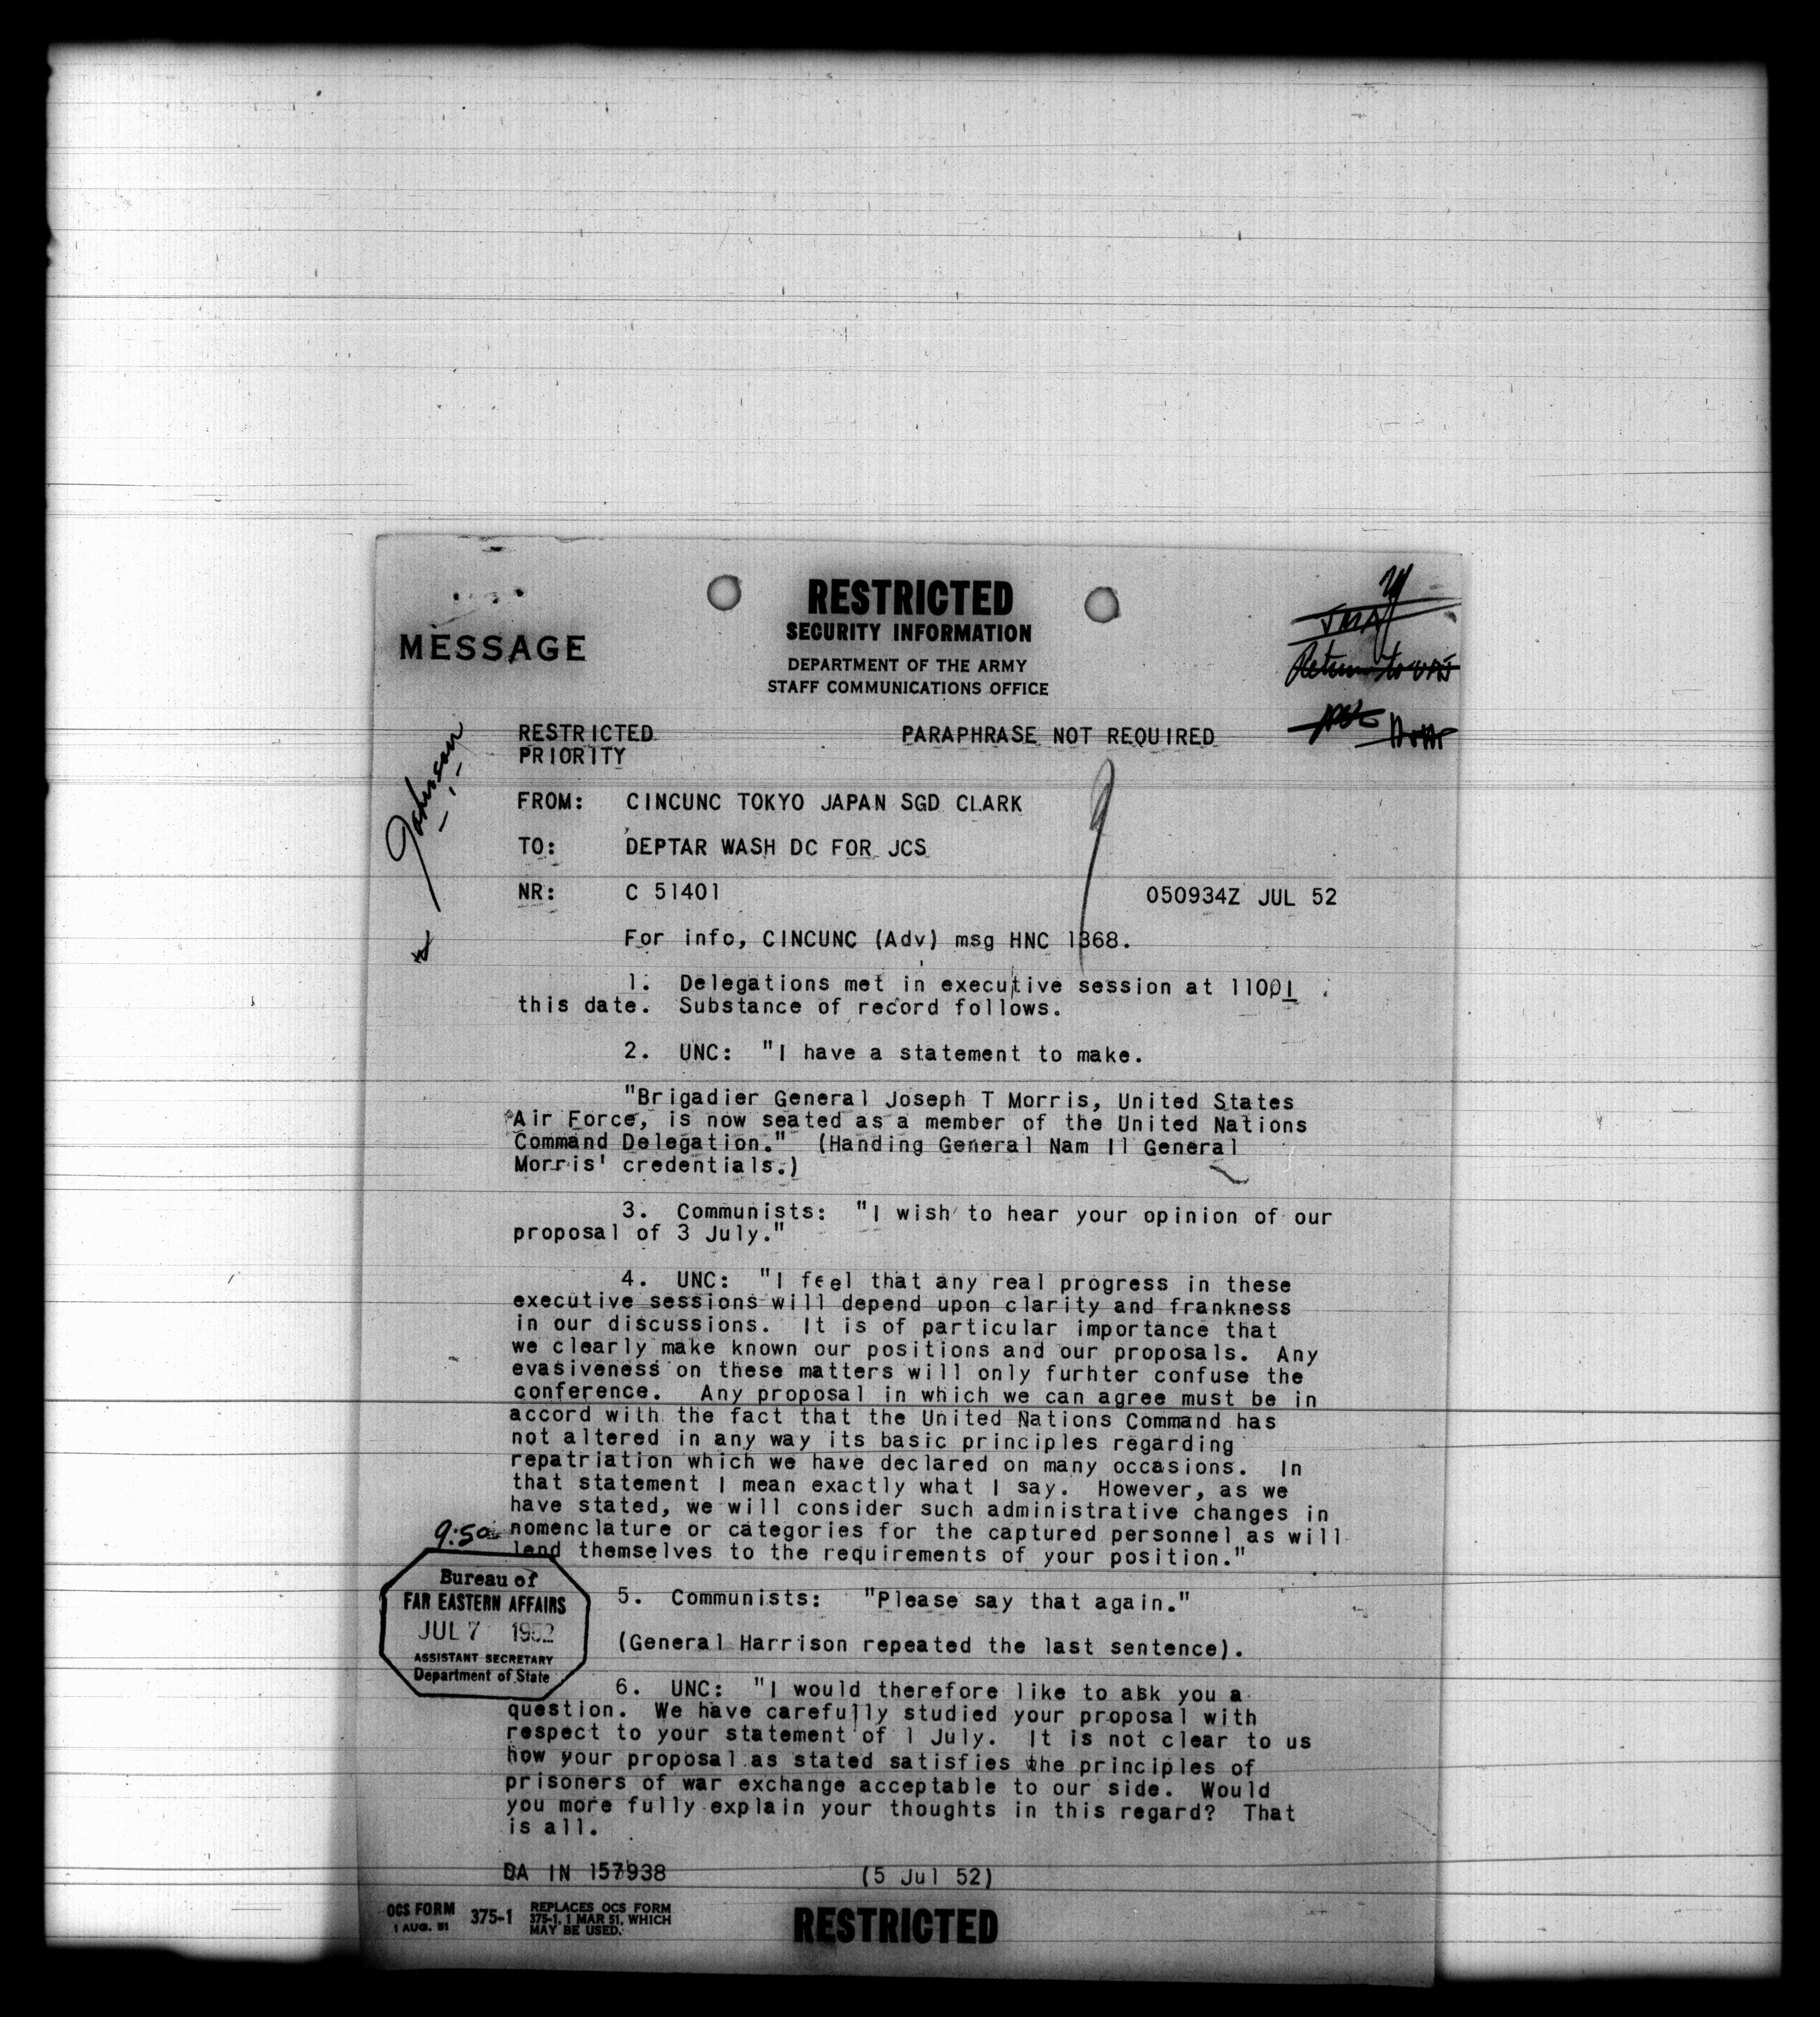 RESTRICTED
SECURITY INFORMATION
MESSAGE
DEPARTMENT OF THE ARMY
STAFF COMMUNICATIONS OFFICE
Return to
Johnson
RESTRICTED PARAPHRASE NOT REQUIRED
PRIORITY
FROM: CINCUNC TOKYO JAPAN SGD CLARK
TO: DEPTAR WASH DC FOR JCS
NR: C 51401 050934Z JUL 52
For info, CINCUNC (Adv) msg HNC 1368.
1. Delegations met in executive session at 1100I
this date. Substance of record follows.
2. UNC: "I have a statement to make.
"Brigadier General Joseph T Morris, United States
Air Force, is now seated as a member of the United Nations
Command Delegation." (Handing General Nam Il General
Morris' credentials.)
3. Communists: "I wish to hear your opinion of our
proposal of 3 July."
4. UNC: "I feel that any real progress in these
executive sessions will depend upon clarity and frankness
in our discussions. It is of particular importance that
we clearly make known our positions and our proposals. Any
evasiveness on these matters will only furhter confuse the
conference. Any proposal in which we can agree must be in
accord with the fact that the United Nations Command has
not altered in any way its basic principles regarding
repatriation which we have declared on many occasions. In
that statement I mean exactly what I say. However, as we
have stated, we will consider such administrative changes in
nomenclature or categories for the captured personnel as will
lend themselves to the requirements of your position."
9:50
Bureau of
FAR EASTERN AFFAIRS
JUL 7 1952
ASSISTANT SECRETARY
Department of State
5. Communists: "Please say that again."
(General Harrison repeated the last sentence).
6. UNC: "I would therefore like to ask you a
question. We have carefully studied your proposal with
respect to your statement of 1 July. It is not clear to us
how your proposal as stated satisfies the principles of
prisoners of war exchange acceptable to our side. Would
you more fully explain your thoughts in this regard? That
is all.
DA IN 157938 (5 Jul 52)
OCS FORM 375-1 REPLACES OCS FORM
1 AUG. 51 375-1, 1 MAR 51, WHICH
MAY BE USED.
RESTRICTED